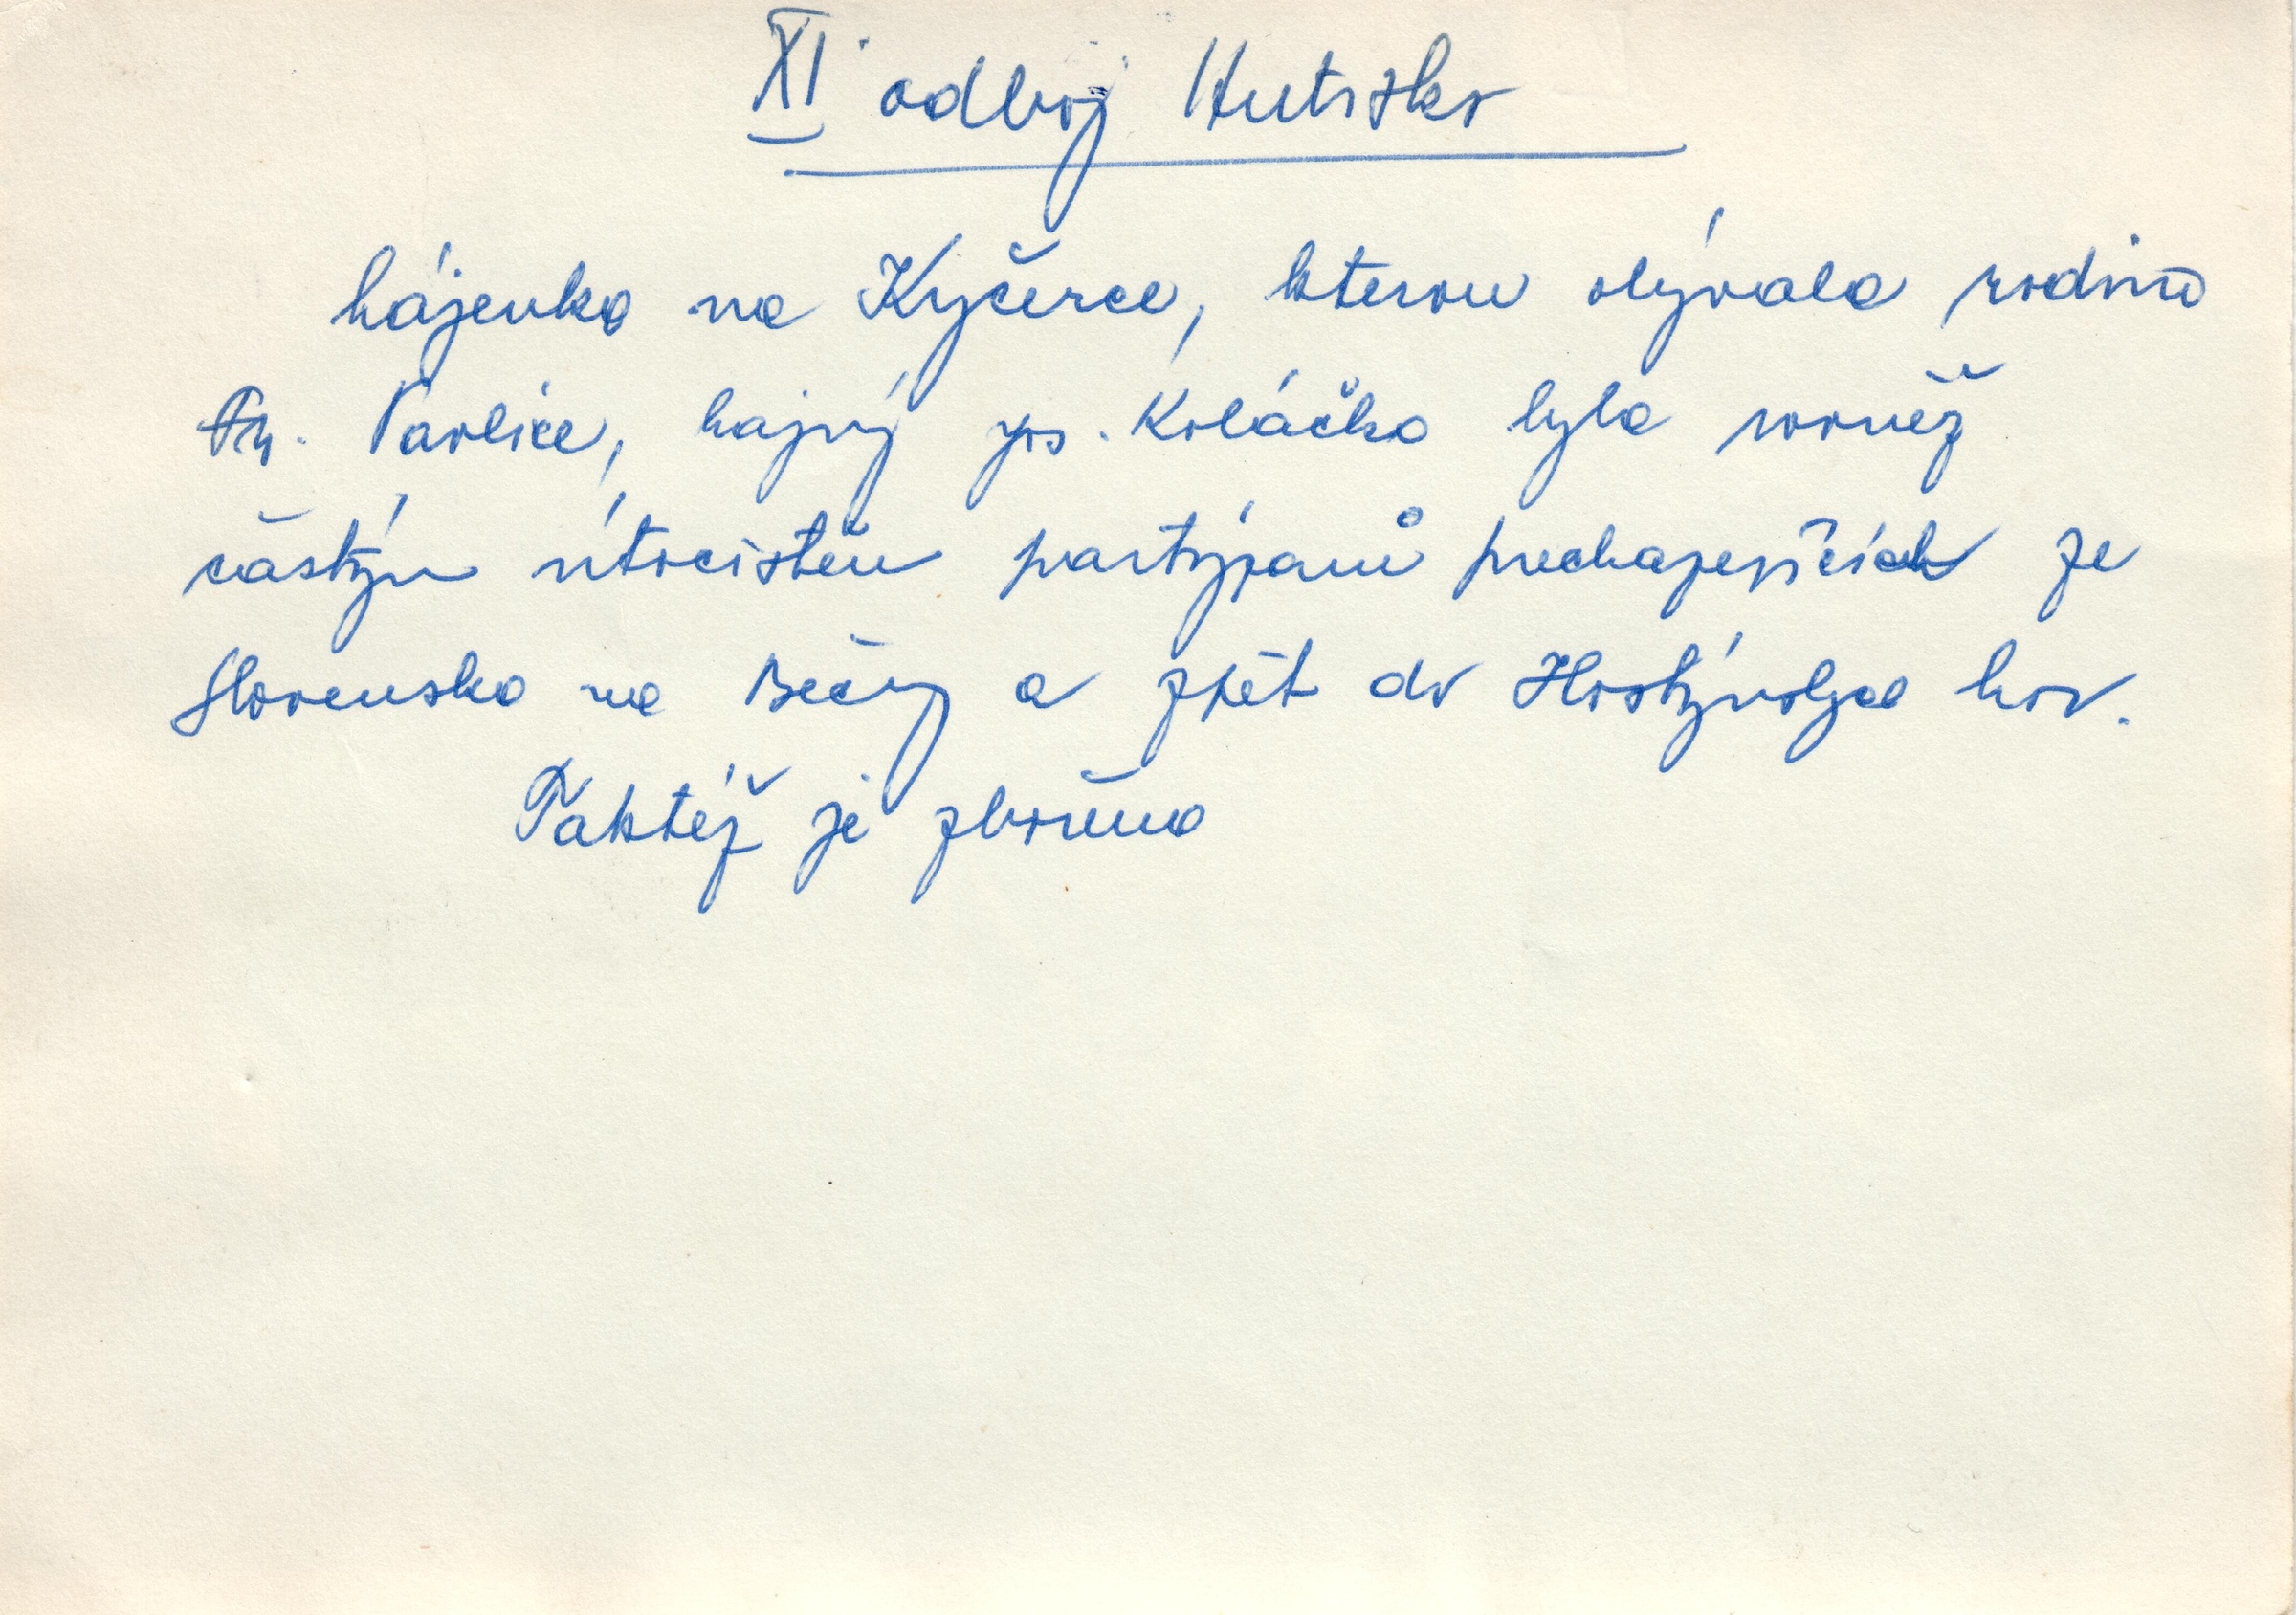 XI odboj Hutisko
hájenka na Kyčerce, kterou obývala rodina
Fr. Pavlice, hajný Jos. Koláčka byla rovněž
častým útočištěm partyzanů prechazejících ze
Slovenska na Bečvy a zpět do Hostýnských hor.
Taktéž je zbořena